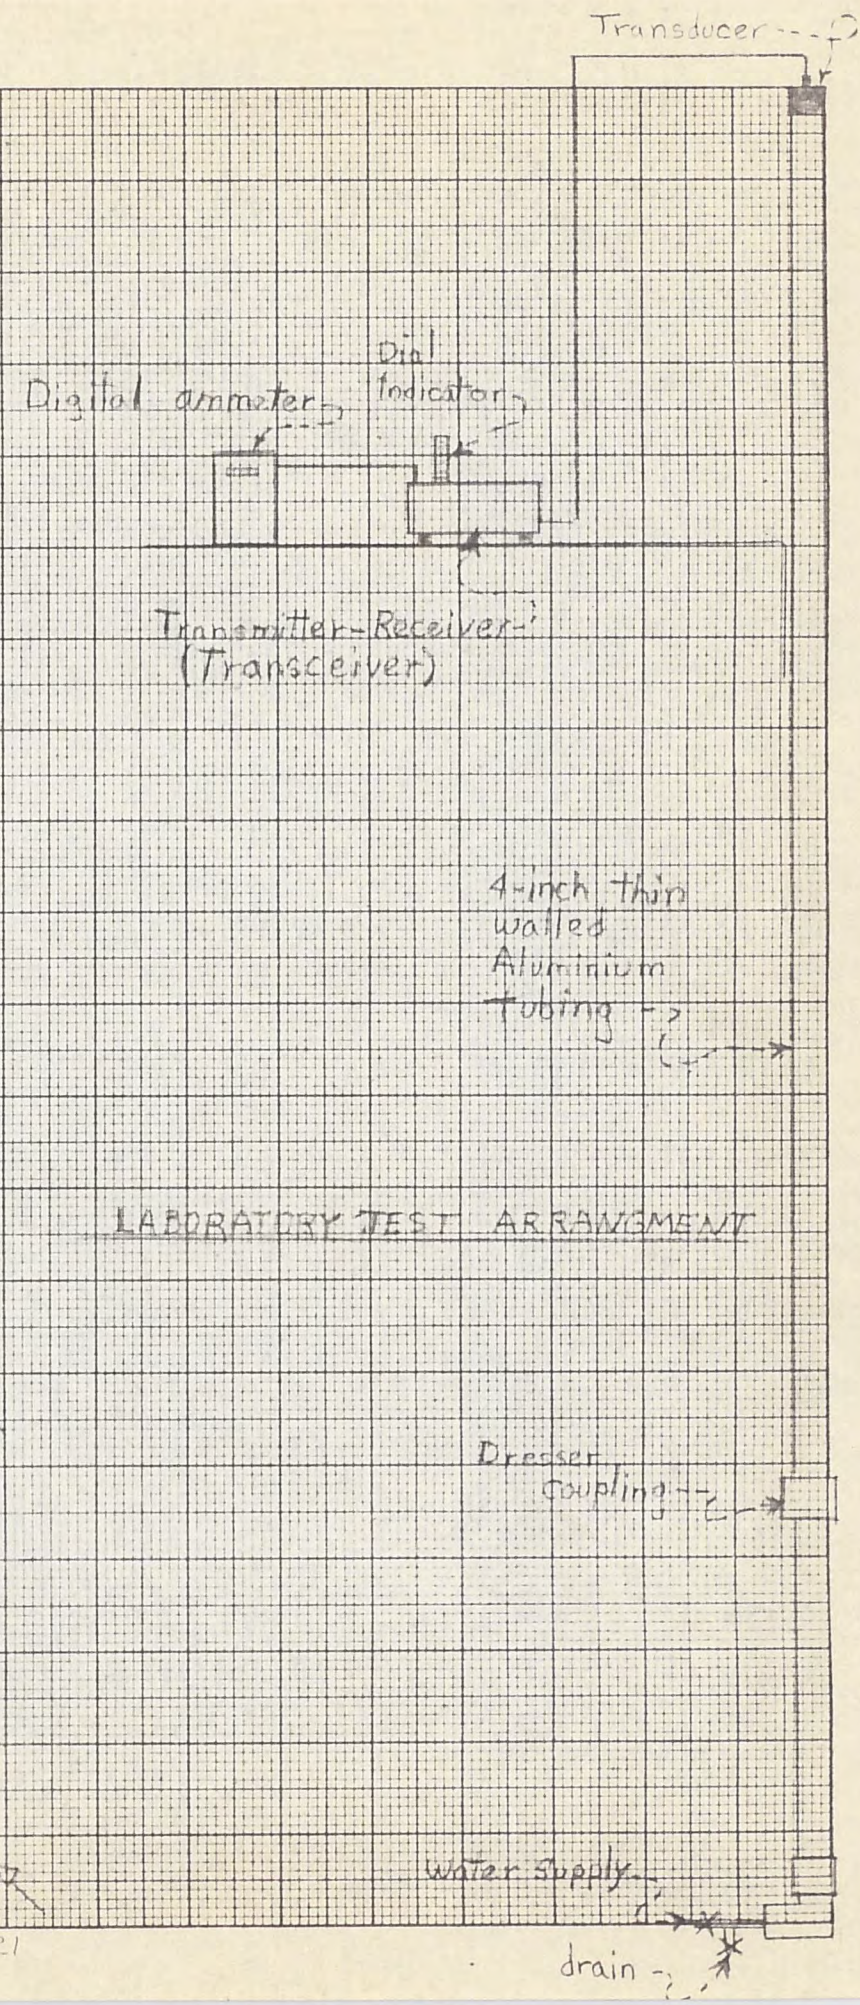 Transducer
Dial
Indicator
Digital ammeter
Transmitter-Receiver
(Transceiver)
4-inch thin
walled
Aluminium
tubing
LABORATORY TEST ARRANGMENT
Dresser
Coupling
Water Supply
drain